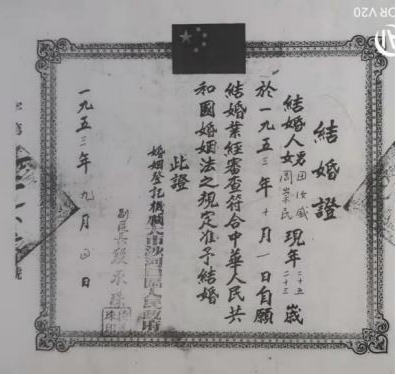 結婚證
結婚人男田汝威 現年二十五歲
女周崇民 二十三
於一九五三年十月一日自願
結婚業經審查符合中華人民共
和國婚姻法之規定准予結婚
此證
婚姻登記機關 市沙河口區人民政府
副區長
一九五三年九月 日